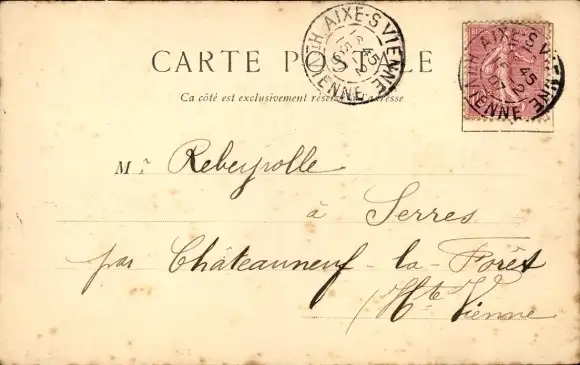 CARTE POSTALE
Ce côté est exclusivement réservé à l'adresse
AIXE-S VIENNE
Hte VIENNE
AIXE-S VIENNE
Hte VIENNE
M.r Rebeyrolle
à Serres
par Châteauneuf-la-Forêt
(Hte Vienne